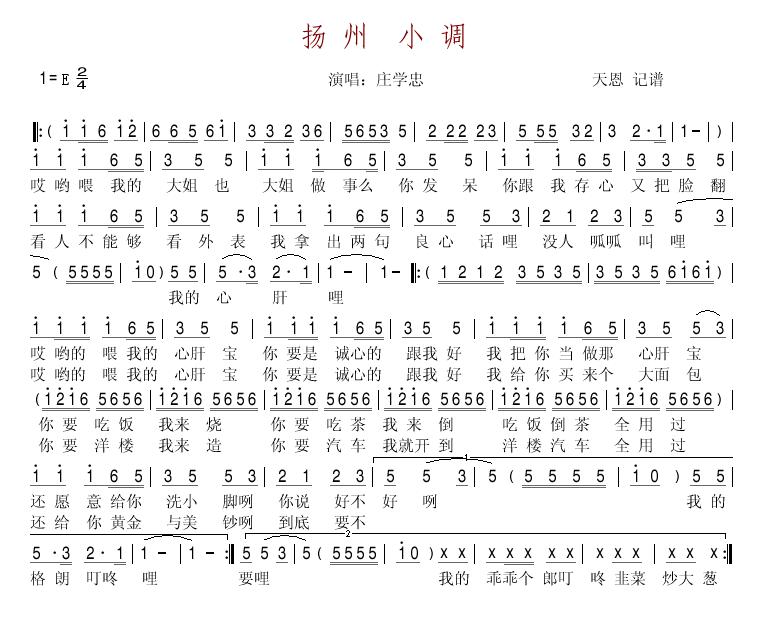 扬州 小调
1=E 2/4 演唱：庄学忠 天恩 记谱
‖:( i i 6 i 2 | 6 6 5 6 i | 3 3 2 3 6 | 5 6 5 3 5 | 2 2 2 2 3 | 5 5 5 3 2 | 3 2·1 | 1 - ) |
i i i 6 5 | 3 5 5 | i i i 6 5 | 3 5 5 | i i i 6 5 | 3 3 5 5 5 |
哎哟喂 我的 大姐 也 大姐 做 事么 你发 呆 你跟 我存心 又把脸 翻
i i i 6 5 | 3 5 5 | i i i 6 5 | 3 5 5 3 | 2 1 2 1 | 5 5 3 |
看人不能够 看外表 我拿 出两句 良心 话哩 没人 呱呱 叫哩
5 ( 5 5 5 5 | i 0 ) 5 5 | 5·3 2·1 | 1 - | 1 - ‖:( 1 2 1 2 3 5 3 5 | 3 5 3 5 6 i 6 i ) |
我的 心 肝 哩
i i i 6 5 | 3 5 5 | i i i 6 5 | 3 5 5 | i i i 6 5 | 3 5 5 3 |
哎哟的 喂我的 心肝 宝 你要是 诚心的 跟我 好 我把你 当做那 心肝 宝
哎哟的 喂我的 心肝 宝 你要是 诚心的 跟我 好 我给你 买来个 大面 包
( i 2 i 6 5 6 5 6 | i 2 i 6 5 6 5 6 | i 2 i 6 5 6 5 6 | i 2 i 6 5 6 5 6 | i 2 i 6 5 6 5 6 | i 2 i 6 5 6 5 6 ) |
你要 吃饭 我来 烧 你要 吃茶 我来 倒 吃饭倒茶 全用 过
你要 洋楼 我来 造 你要 汽车 我就开到 洋楼汽车 全用 过
i i i 6 5 | 3 5 5 3 | 2 1 2 3 | 1 5 5 3 | 5 ( 5 5 5 5 | i 0 ) 5 5 |
还愿 意给你 洗小 脚咧 你说 好不 好 咧 我的
还给 你黄金 与美 钞咧 到底 要不
5·3 2·1 | 1 - | 1 - :‖ 2 5 5 3 | 5 ( 5 5 5 5 | i 0 ) x x | x x x x x | x x x | x x x :‖
格朗 叮咚 哩 要哩 我的 乖乖个 郎叮 咚韭菜 炒大葱